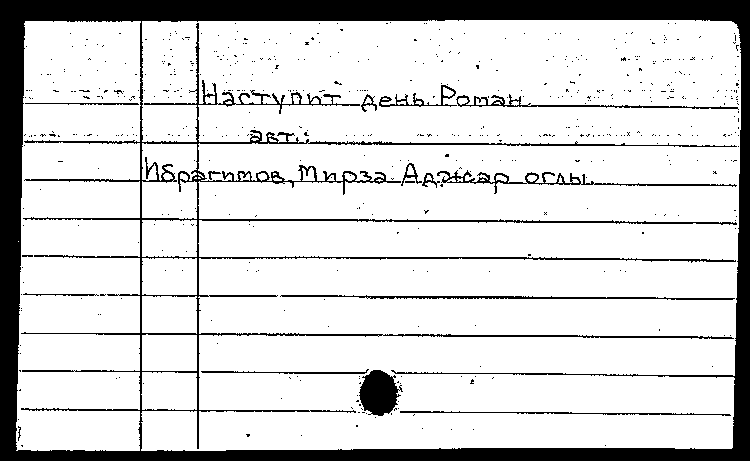 Наступит день. Роман.
авт.:
Ибрагимов, Мирза Аджар оглы.